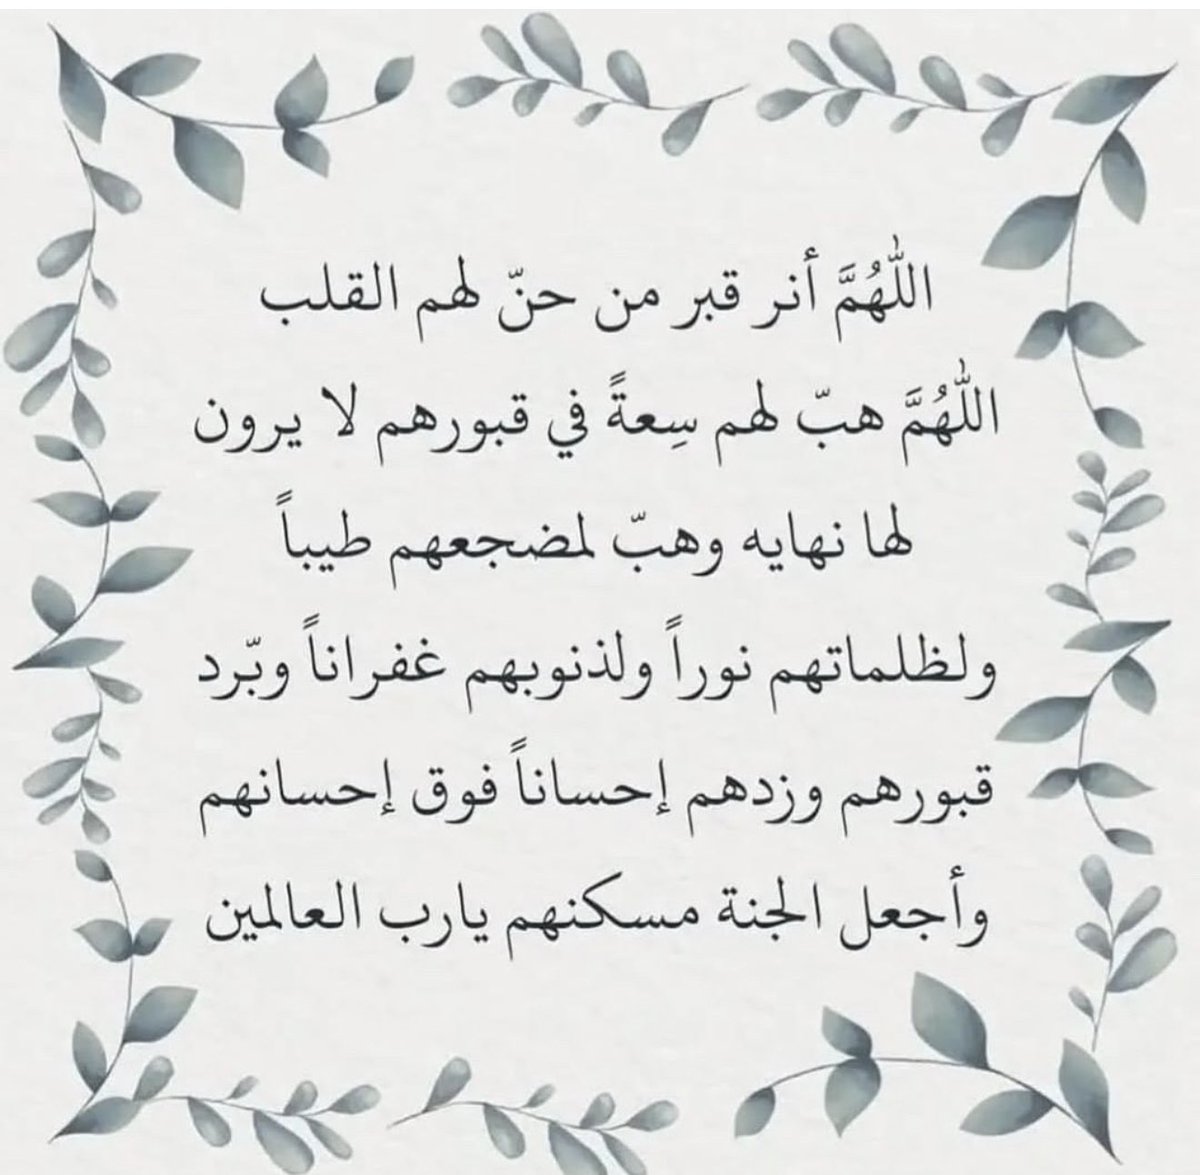 اللّٰهُمَّ أنر قبر من حنّ لهم القلب
اللّٰهُمَّ هبّ لهم سِعةً في قبورهم لا يرون
لها نهايه وهبّ لمضجعهم طيباً
ولظلماتهم نوراً ولذنوبهم غفراناً وبّرد
قبورهم وزدهم إحساناً فوق إحسانهم
وأجعل الجنة مسكنهم يارب العالمين